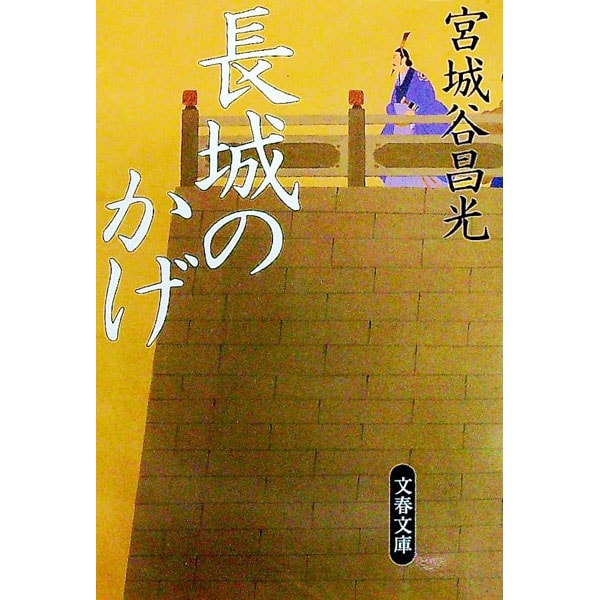 宮城谷昌光
長城の
かげ
文春文庫